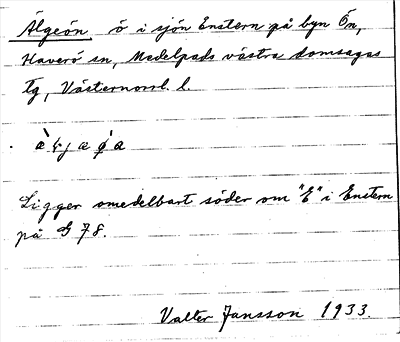 Älgeön, ö i sjön Enstern på byn Ön,
Haverö sn, Medelpads västra domsagas
tg, Västernorrl. l.
Ligger omedelbart söder om "E" i Enstern
på G 78.
Valter Jansson 1933.